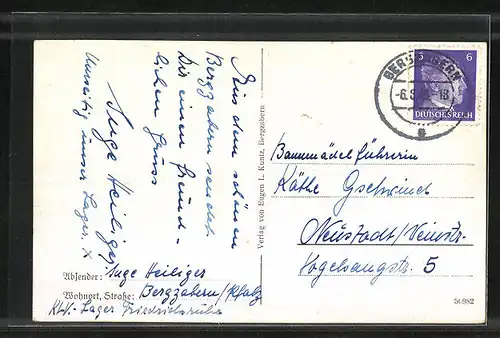 Aus dem schönen
Bergzabern sendet
Dir einen freund-
lichen Gruss
Inge Heiliger
Umseitig unser Lager. X
Absender: Inge Heiliger
Wohnort, Straße: Bergzabern/Pfalz
KLV.-Lager Friedrichsruhe
Verlag von Eugen L. Kuntz, Bergzabern
BERGZABERN
-6.8. -18
a
6
DEUTSCHES REICH
Bannmädelführerin
Käthe Gschwind
Neustadt/Weinstr.
Vogelsangstr. 5
50982